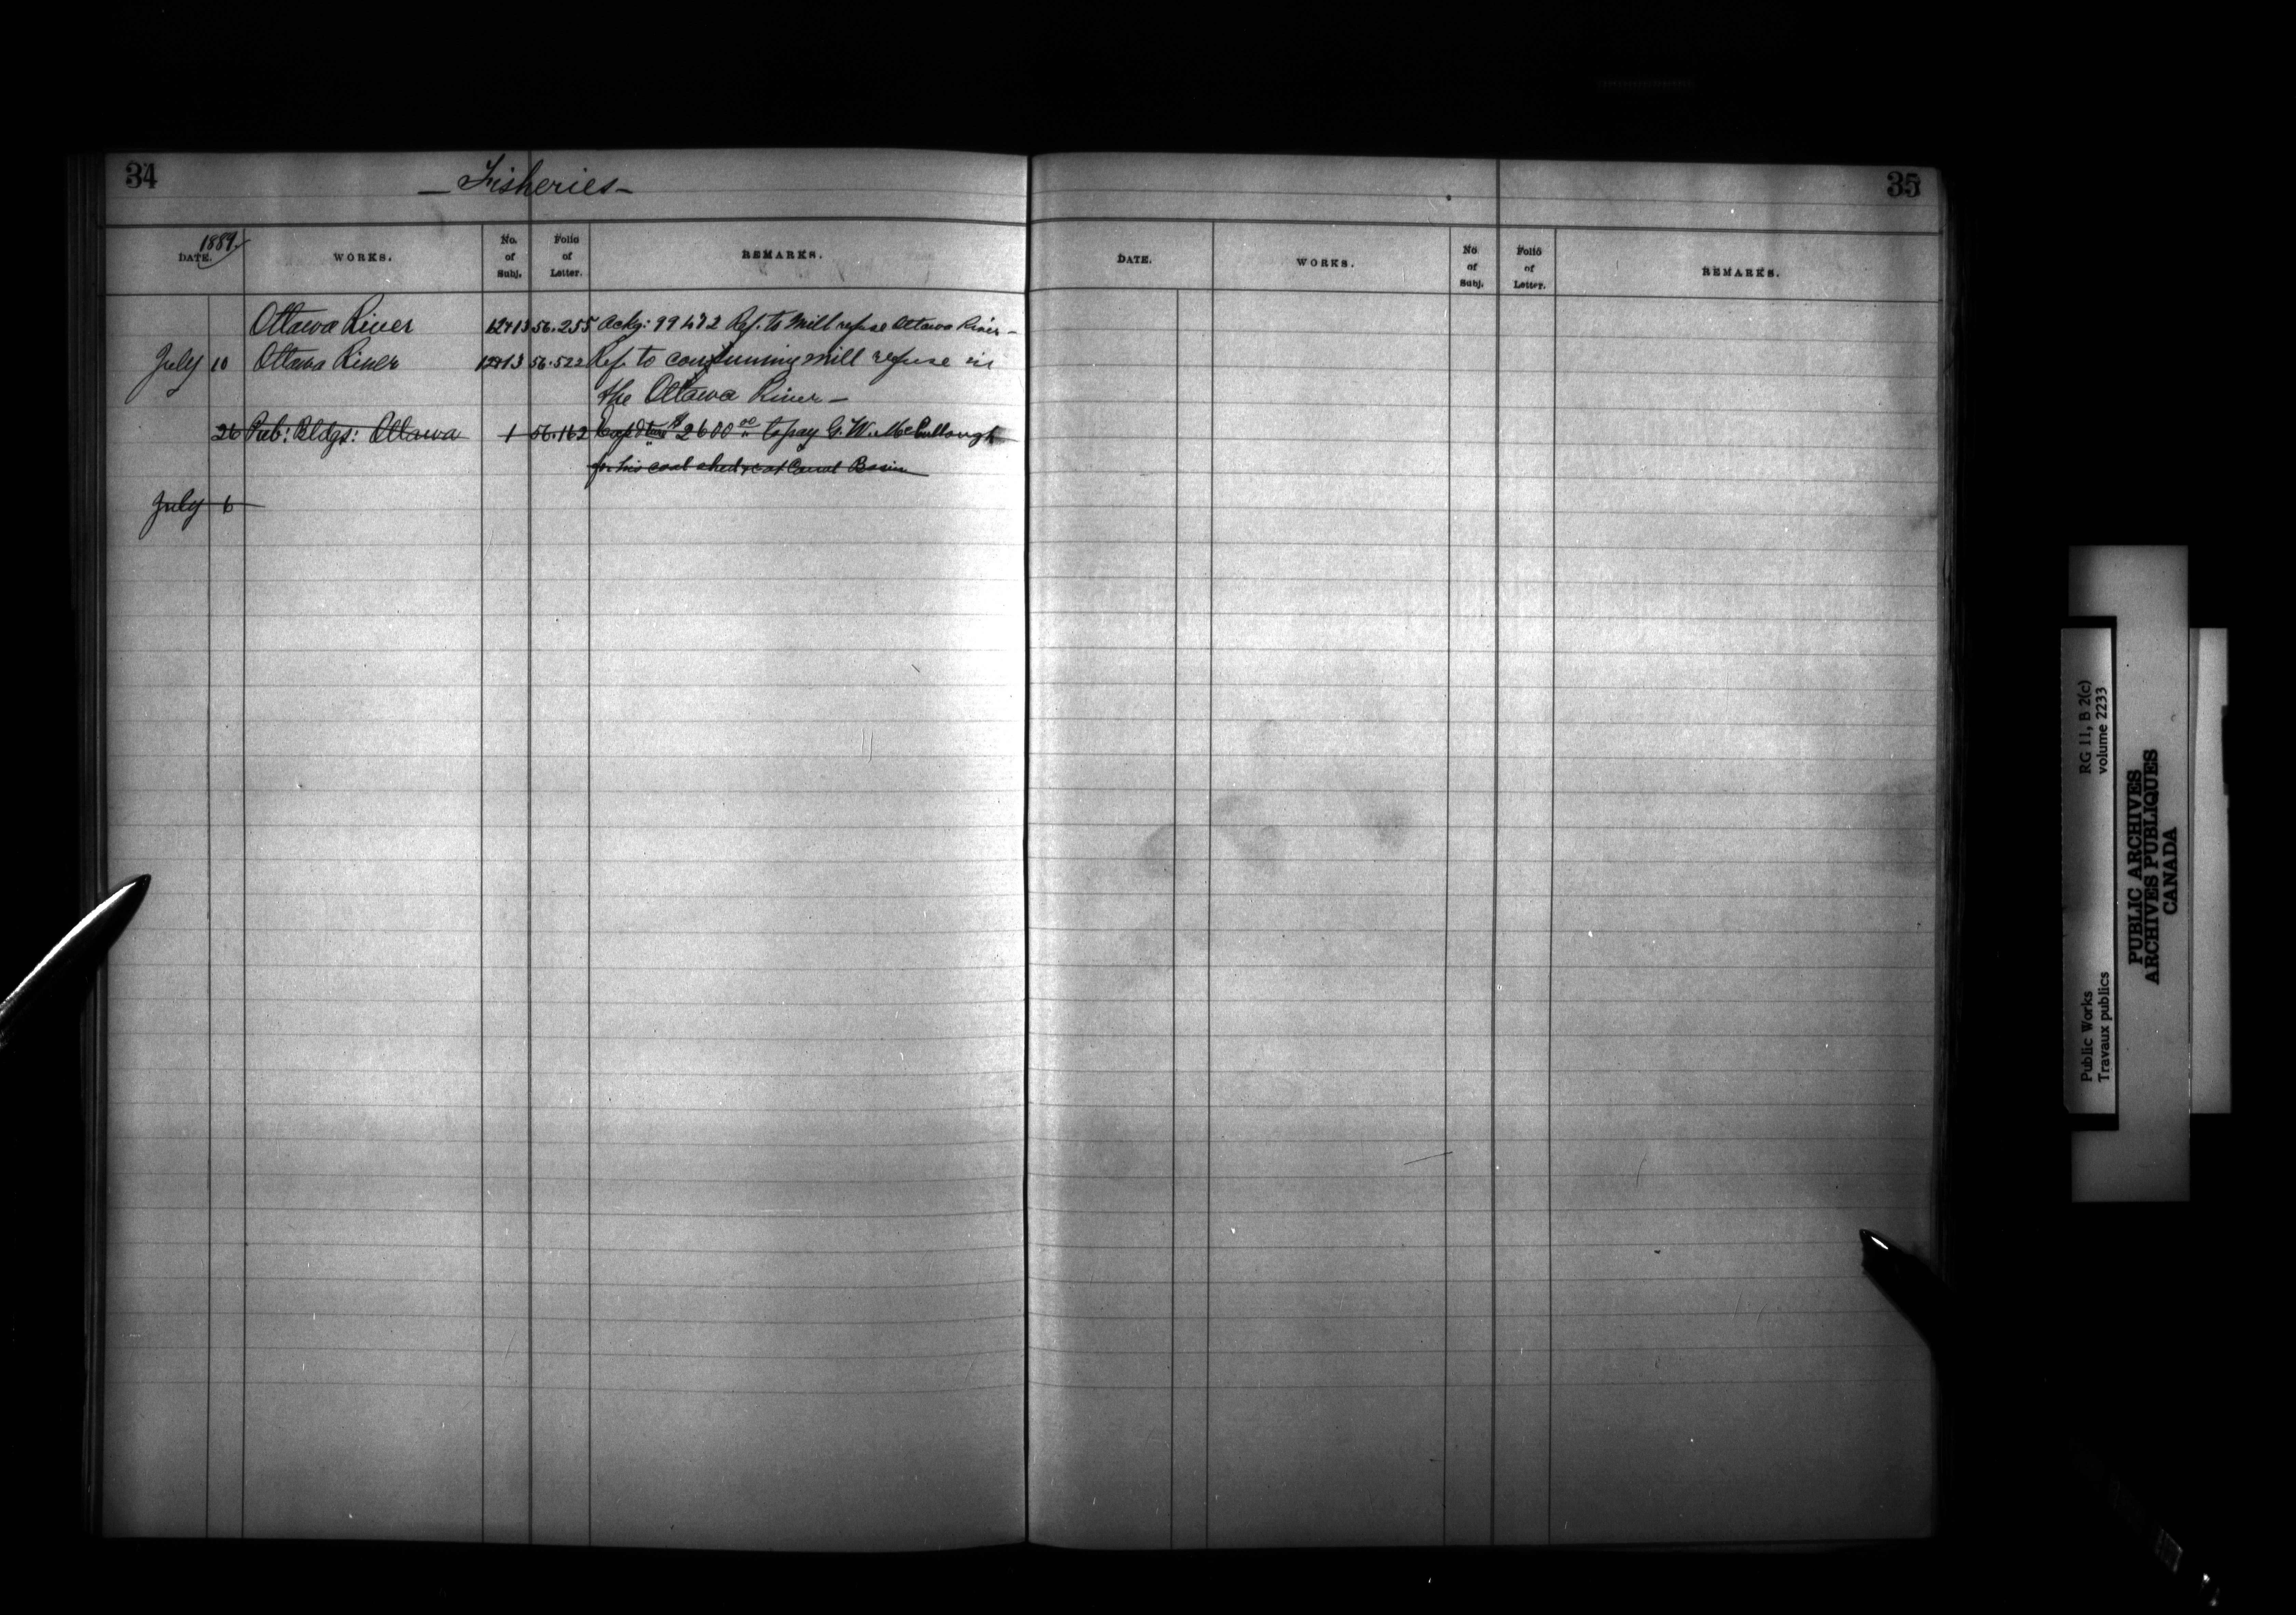 34
— Fisheries —
1889
DATE. WORKS. No. of Subj. Folio of Letter. REMARKS.
Ottawa River 12713 56.255 Ackg: 99472 Ref. to Mill refuse Ottawa River —
July 10 Ottawa River 12713 56.522 Ref. to consuming mill refuse in
the Ottawa River —
26 Pub: Bldgs: Ottawa 1 56.162 $2600.00 to pay G. W. McCullough
for his coal shed &c at Canal Basin
July 6
35
DATE. WORKS. No. of Subj. Folio of Letter. REMARKS.
RG 11, B 2(c)
volume 2233
Public Works
Travaux publics
PUBLIC ARCHIVES
ARCHIVES PUBLIQUES
CANADA